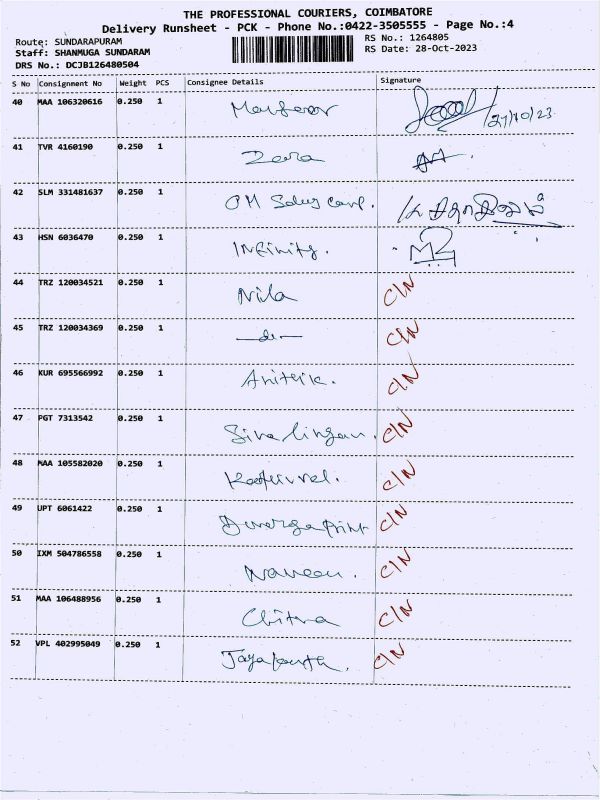 THE PROFESSIONAL COURIERS, COIMBATORE
Delivery Runsheet - PCK - Phone No.:0422-3505555 - Page No.:4
Route: SUNDARAPURAM
RS No.: 1264805
Staff: SHANMUGA SUNDARAM
RS Date: 28-Oct-2023
DRS No.: DCJB126480504
S No Consignment No Weight PCS Consignee Details Signature
40 MAA 106320616 0.250 1 27/10/23
41 TVR 4160190 0.250 1 Zara
42 SLM 331481637 0.250 1 OM Sales Corp.
43 HSN 6036470 0.250 1 Infinity.
44 TRZ 120034521 0.250 1 Nila C/N
45 TRZ 120034369 0.250 1 —do— C/N
46 KUR 695566992 0.250 1 C/N
47 PGT 7313542 0.250 1 Sivalingam. C/N
48 MAA 105582020 0.250 1 Kathirvel. C/N
49 UPT 6061422 0.250 1 Print C/N
50 IXM 504786558 0.250 1 Naveen. C/N
51 MAA 106488956 0.250 1 Chitra C/N
52 VPL 402995049 0.250 1 C/N